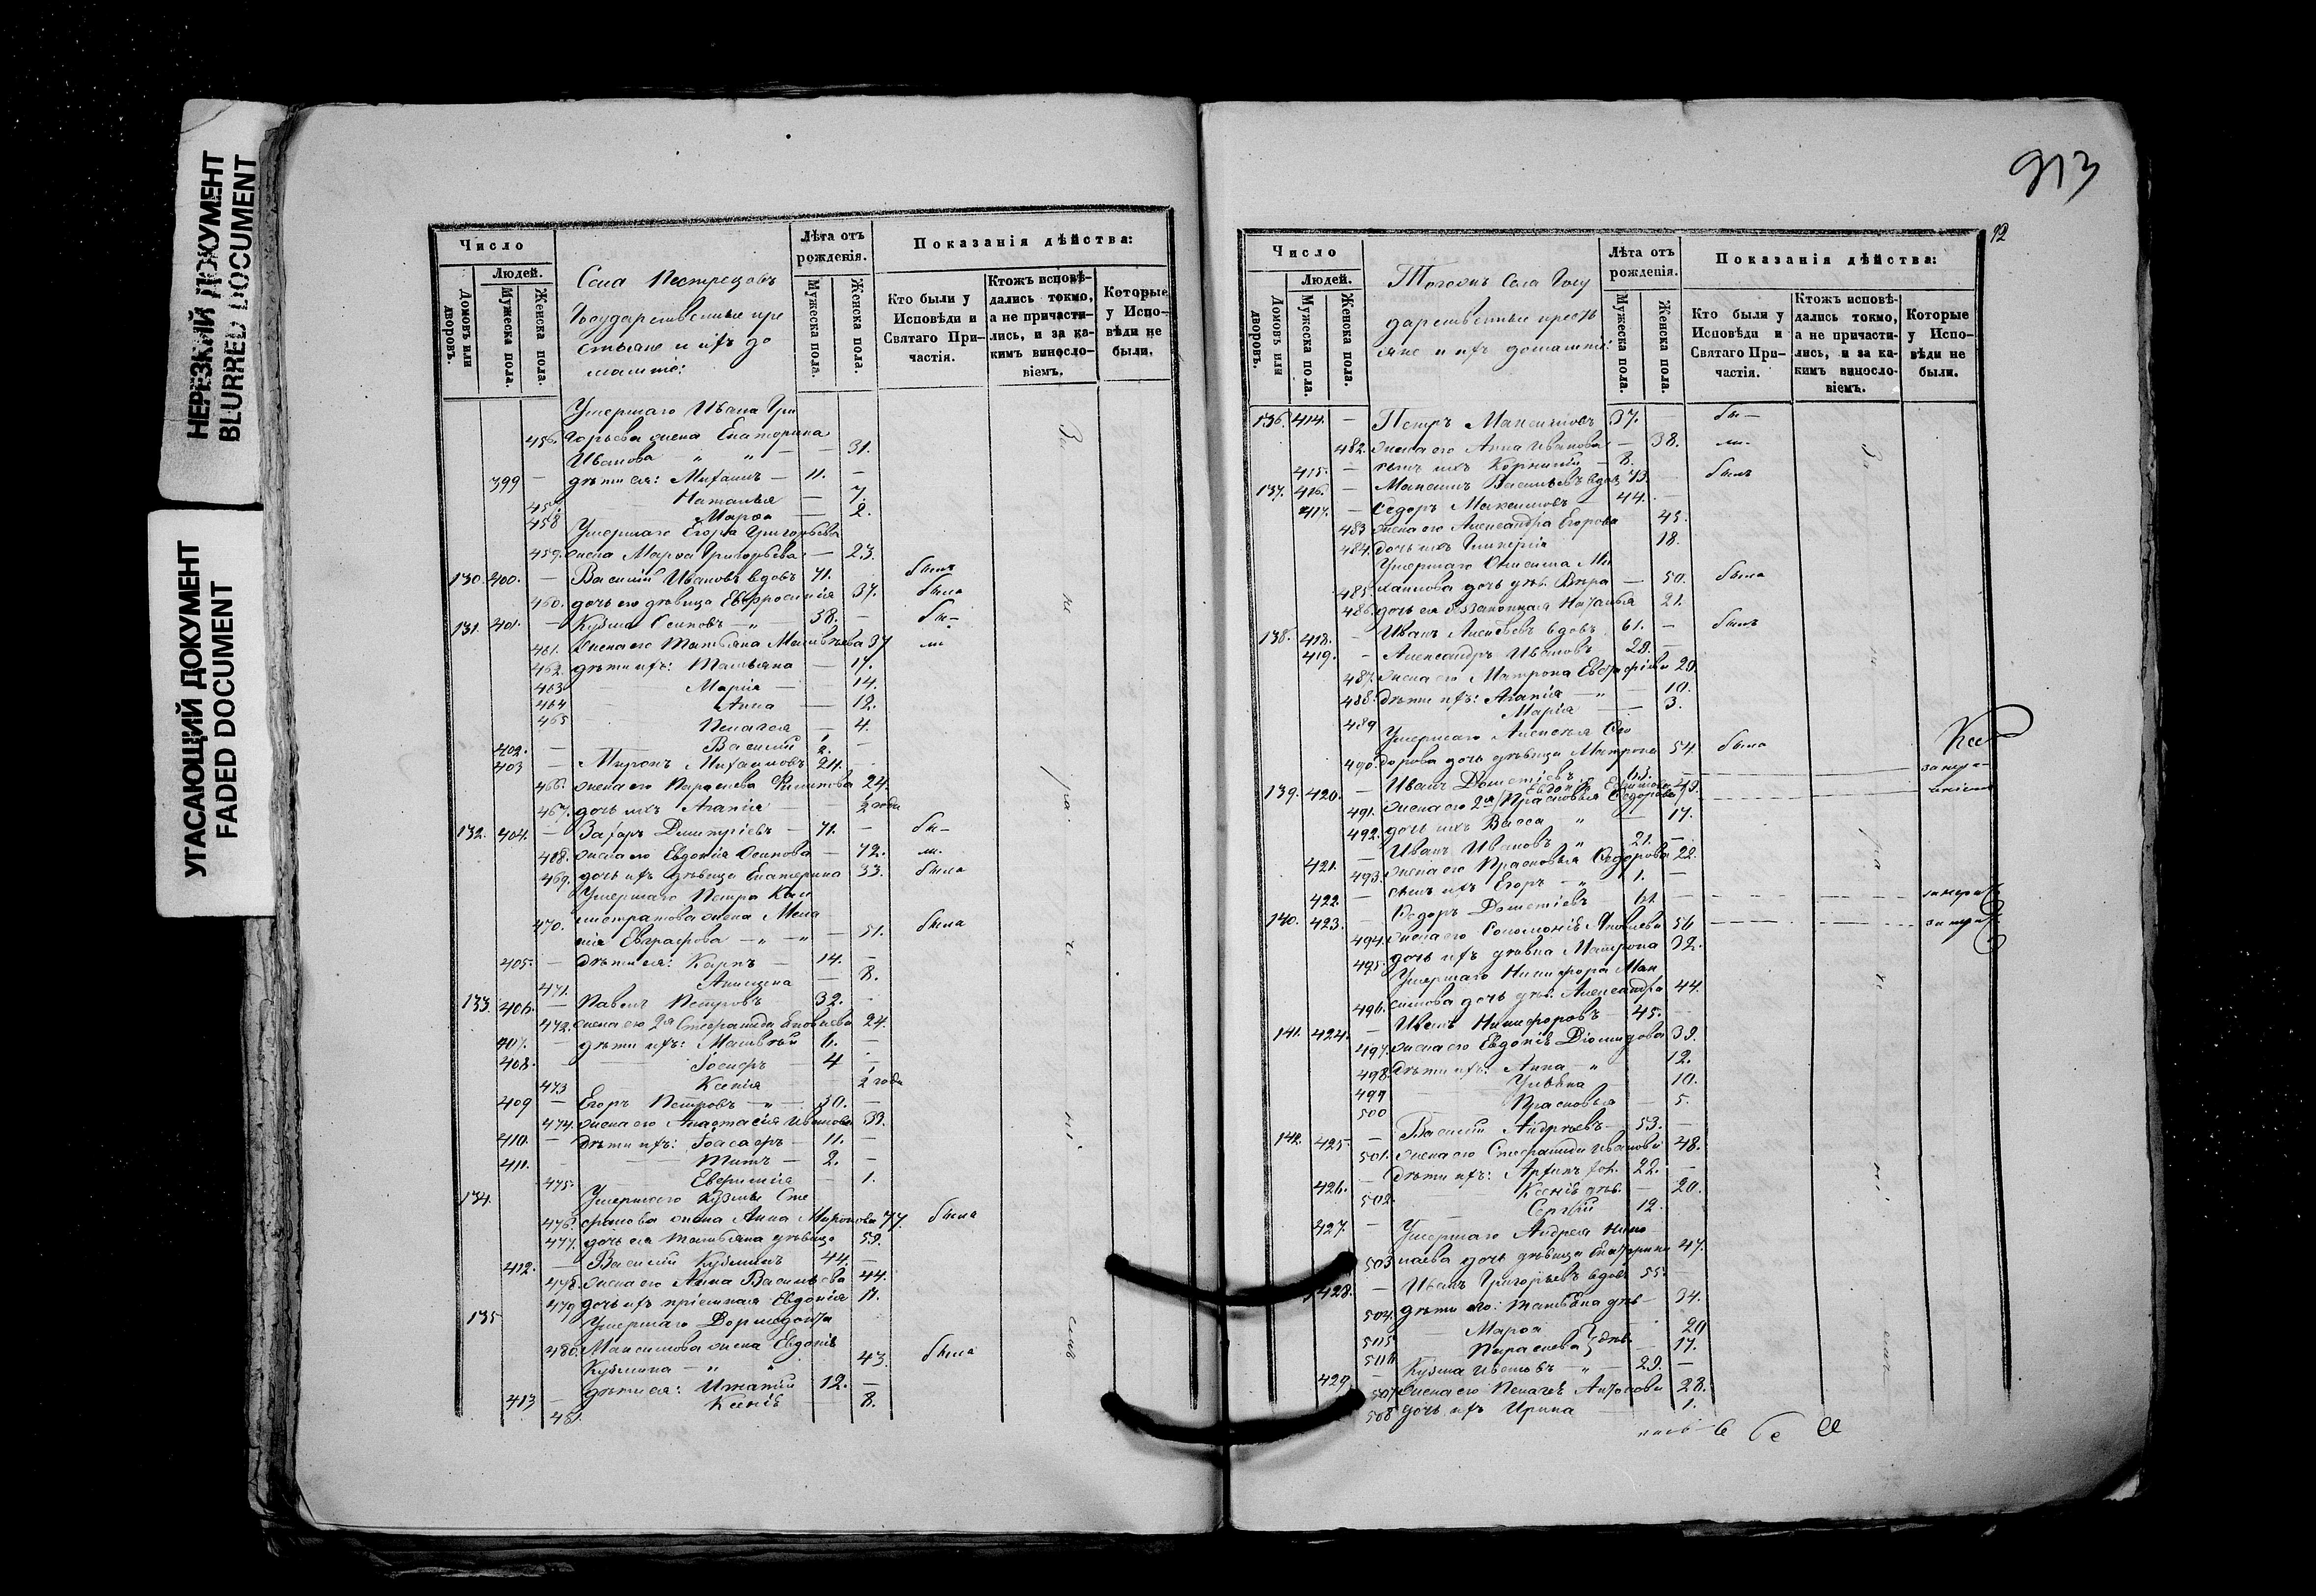 НЕРЕЗКИЙ ДОКУМЕНТ
BLURRED DOCUMENT
УГАСАЮЩИЙ ДОКУМЕНТ
FADED DOCUMENT
Число
Людей.
Домовъ или дворовъ.
Мужеска пола.
Женска пола.
Села Пестрецовъ
Государственные кре
стьяне и ихъ до
машніе:
Лѣта отъ рожденія.
Мужеска пола.
Женска пола.
Показанія дѣйства:
Кто были у Исповѣди и Святаго При-частія.
Ктожъ исповѣ-дались токмо, а не причасти-лись, и за ка-кимъ винословіемъ.
Которые у Испо-вѣди не были.
Умершаго Ивана Гри
456. горьева жена Екатерина
Иванова — " " — 31.
399 — дѣти ея: Михаилъ — 11. —
457. Наталья — 7.
458 Марѳа — 2.
Умершаго Егора Григорьева
459. жена Марѳа Григорьева — 23.
130. 400. — Василій Ивановъ вдовъ 71. былъ
460. дочь его дѣвица Евфросинія 37. была
131. 401. — Кузма Осиповъ — " — 38. — бы-
461. жена его Татьяна Матвѣева 37 ли
462. дѣти ихъ: Татьяна — 17.
463 Марія — 14.
464 Анна — 12.
465 Пелагея — 4.
402. — Василій 2. —
403 — Миронъ Михаиловъ 24.
466. жена его Параскева Филипова 24.
467. дочь ихъ Агапія — ½ года
132. 404. — Захаръ Дмитріевъ — 71. — бы-
468. жена его Евдокія Осипова — 72. ли.
469. дочь ихъ дѣвица Екатерина 33. была
Умершаго Петра Кал
470. листратова жена Мела
нія Евграфова — " — " — 51. была
405. — дѣти ея: Карпъ — 14. —
471. Анисина — 8.
133. 406. — Павелъ Петровъ 32. -
472. жена его 2я Стефанида Яковлева 24.
407. — дѣти ихъ: Матвѣй 6. —
408. Іосифъ — 4 —
473 — Ксенія ½ года
409 — Егоръ Петровъ — " — 30. —
474. жена его Анастасія Иванова 33.
410. — дѣти ихъ: Іоасафъ — 11. —
411. — Титъ — 2. —
475. Евфимія — 1.
134. Умершаго Кузмы Сте
476. фанова жена Анна Миронова 77. была
477. дочь ея Татьяна дѣвица 59.
412. — Василій Кузминъ 44. —
478. жена его Анна Васильева 44.
479 дочь ихъ пріемная Евдокія 17.
135 Умершаго Дормедонта
480. Максимова жена Евдокія
Кузмина — " " 43. была
413 — дѣти ея: Игнатій 12. —
481. Ксенія 8.
913
92
Число
Людей.
Домовъ или дворовъ.
Мужеска пола.
Женска пола.
Тогожъ Села Госу
дарственные кресть
яне и ихъ домашніе:
Лѣта отъ рожденія.
Мужеска пола.
Женска пола.
Показанія дѣйства:
Кто были у Исповѣди и Святаго При-частія.
Ктожъ исповѣ-дались токмо, а не причасти-лись, и за ка-кимъ винословіемъ.
Которые у Испо-вѣди не были.
136. 414. — Петръ Максимовъ 37. — бы-
482. жена его Анна Иванова — 38. ли.
415. — сынъ ихъ Корнилій — 8.
137. 416. — Максимъ Васильевъ вдов. 73. — былъ
417. — Ѳедоръ Максимовъ — 44. —
483 жена его Александра Егорова 45.
484. дочь ихъ Гликерія 18.
Умершаго Онисима Ми
485. хаилова дочь дѣв. Вѣра — 50. была
486. дочь ея беззаконная Наталья 21.
138. 418. — Иванъ Алексѣевъ вдовъ 61. — былъ
419. — Александръ Ивановъ 28. —
487. жена его Матрона Евграфова 29.
488. дѣти ихъ: Агапія — " — 10.
489 Марія — 3.
Умершаго Алексѣя Ѳео
490. дорова дочь дѣвица Матрона 54. была
139. 420. — Иванъ Дометіевъ 63. —
491. жена его 2я Прасковья Ѳедорова 49.
492. дочь ихъ Васса " — 17.
421. — Иванъ Ивановъ " 21. —
493. жена его Прасковья Ѳедорова 22.
422. — сынъ ихъ Егоръ — " 1. —
140. 423. — Ѳедоръ Дометіевъ 61.
494. жена его Соломонія Яковлева 56
495. дочь ихъ дѣвка Матрона 32.
Умершаго Никифора Мак
496. симова дочь дѣв. Александра 44.
141. 424. — Иванъ Никифоровъ — 45. —
497. жена его Евдокія Діомидова 39.
498. дѣти ихъ: Анна — " 12.
499 Ульяна 10.
500 Прасковья — 5.
142. 425. — Василій Андреевъ — 53. —
501. жена его Стефанида Иванова 48.
426. — дѣти ихъ: 22. —
502. Ксенія дѣв. — 20.
427. — Сергѣй 12.
Умершаго Андрея Нико
503 лаева дочь дѣвица Екатерина 47.
428. — Иванъ Григорьевъ вдов. 55. —
504. дѣти его: Татьяна дѣв — 34.
505 Марѳа 20
506 Параскева дѣв. 17.
429 — Кузма Ивановъ — " — 29. —
507 жена его Пелагея 28.
508 дочь ихъ Ирина 1.